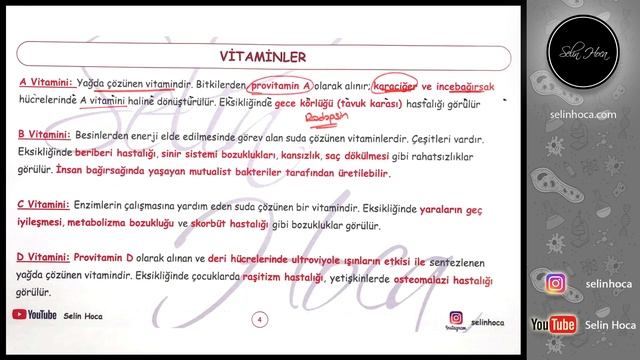 VİTAMİNLER
A Vitamini: Yağda çözünen vitamindir. Bitkilerden provitamin A olarak alınır; karaciğer ve incebağırsak
hücrelerinde A vitamini haline dönüştürülür. Eksikliğinde gece körlüğü (tavuk karası) hastalığı görülür
Rodopsin
B Vitamini: Besinlerden enerji elde edilmesinde görev alan suda çözünen vitaminlerdir. Çeşitleri vardır.
Eksikliğinde beriberi hastalığı, sinir sistemi bozuklukları, kansızlık, saç dökülmesi gibi rahatsızlıklar
görülür. İnsan bağırsağında yaşayan mutualist bakteriler tarafından üretilebilir.
C Vitamini: Enzimlerin çalışmasına yardım eden suda çözünen bir vitamindir. Eksikliğinde yaraların geç
iyileşmesi, metabolizma bozukluğu ve skorbüt hastalığı gibi bozukluklar görülür.
D Vitamini: Provitamin D olarak alınan ve deri hücrelerinde ultroviyole ışınların etkisi ile sentezlenen
yağda çözünen vitamindir. Eksikliğinde çocuklarda raşitizm hastalığı, yetişkinlerde osteomalazi hastalığı
görülür.
YouTube Selin Hoca
4
Instagram selinhoca
Selin Hoca
Selin Hoca
selinhoca.com
selinhoca
YouTube Selin Hoca